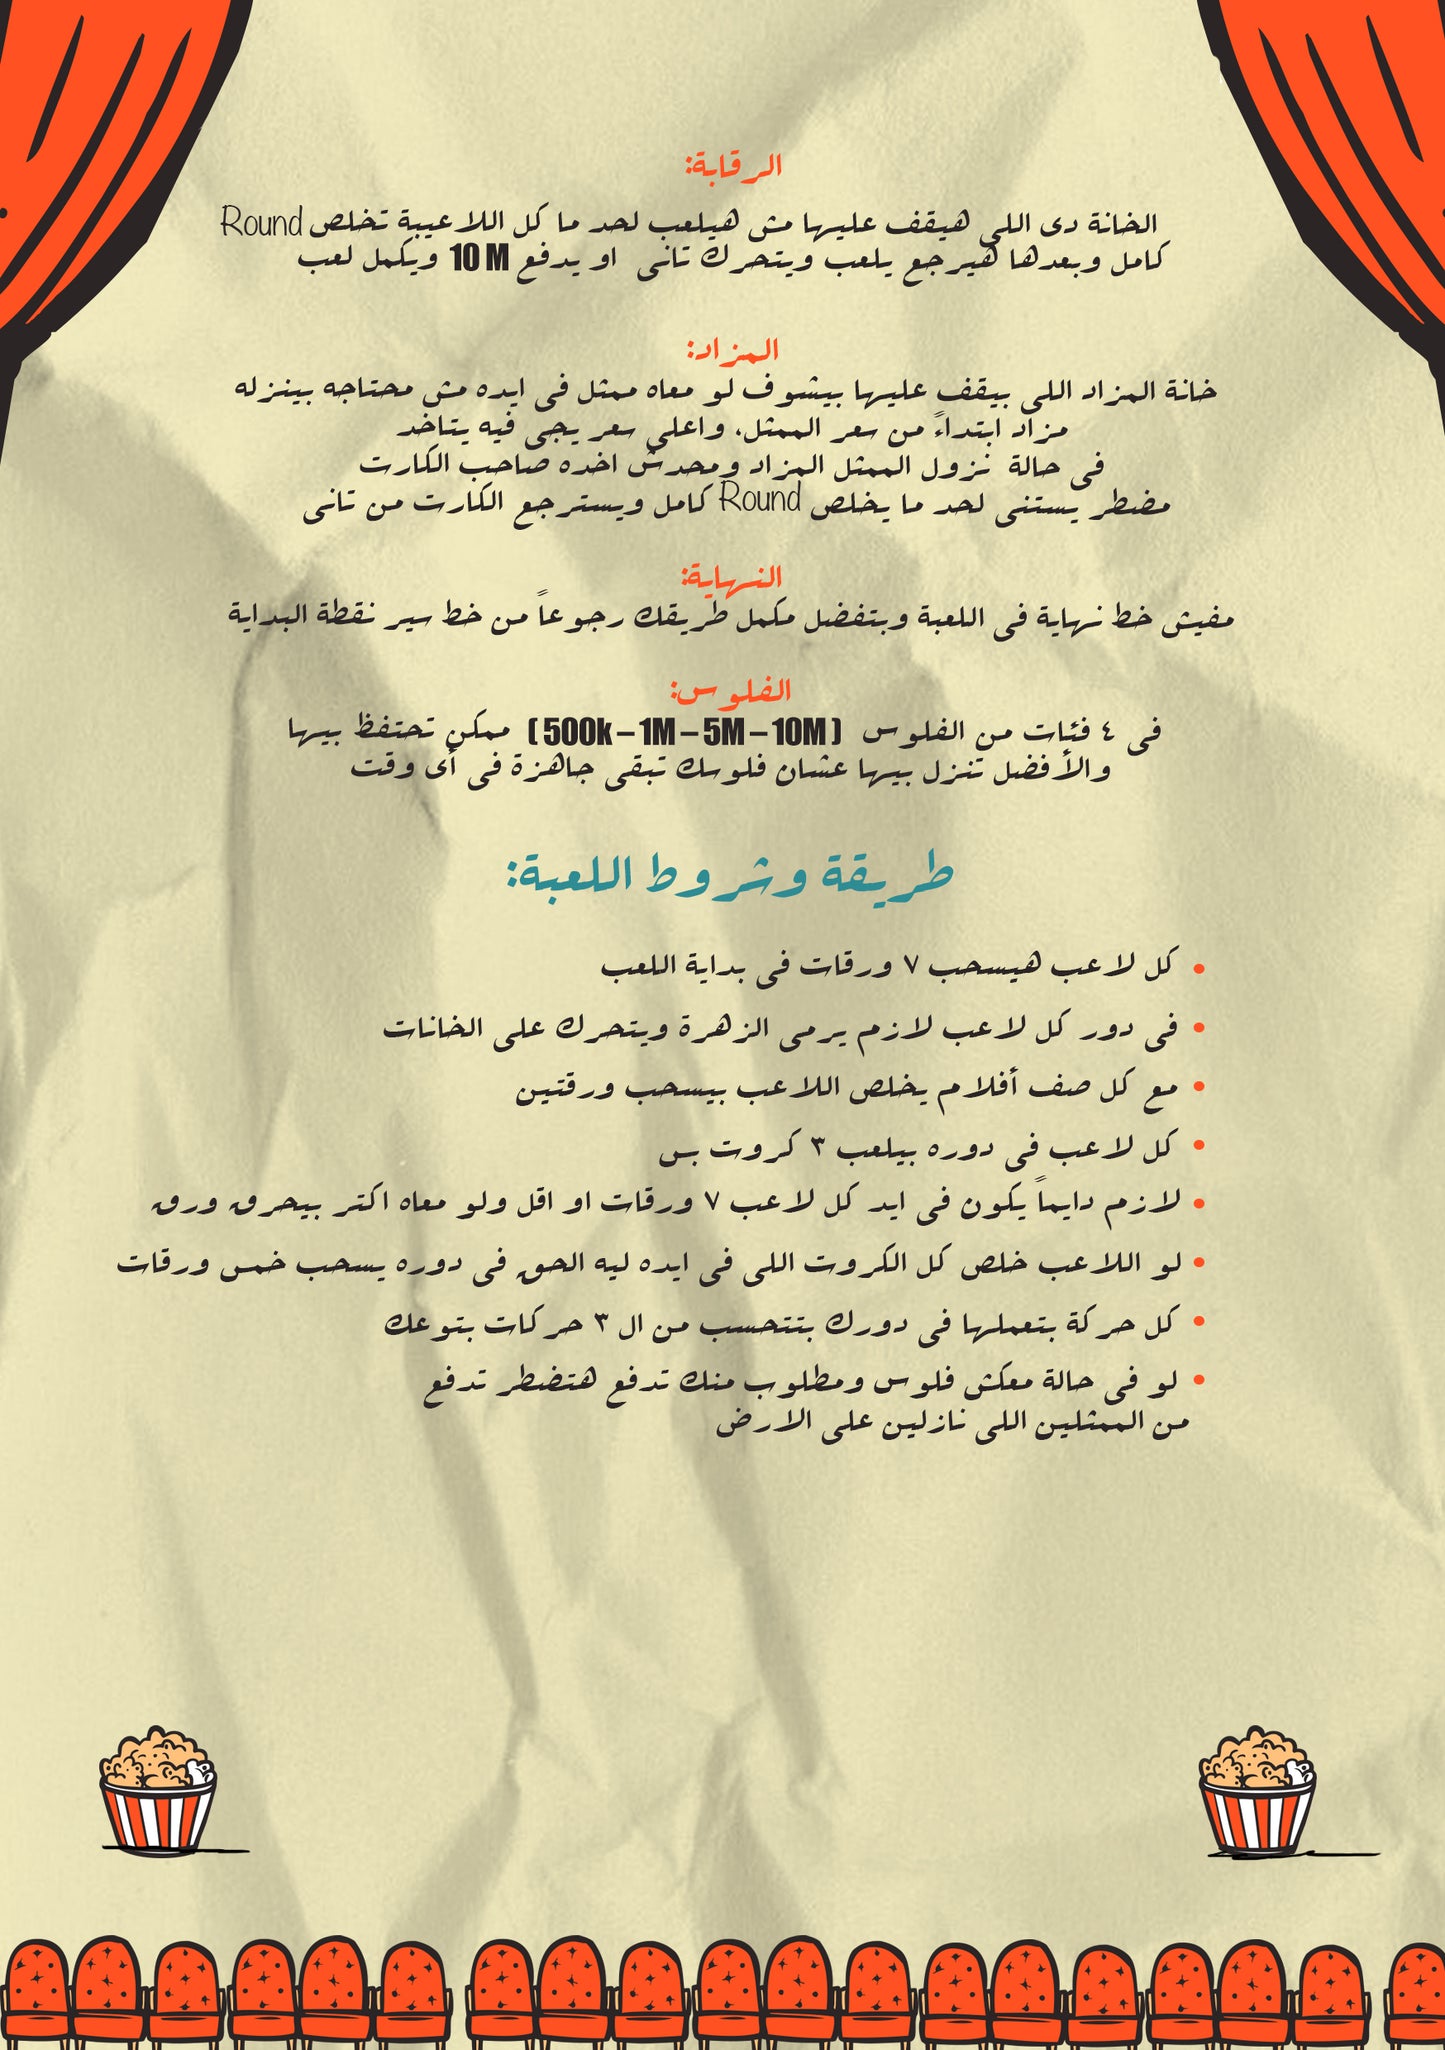 الرقابة:
الخانة دى اللى هيقف عليها مش هيلعب لحد ما كل اللاعيبة تخلص Round
كامل وبعدها هيرجع يلعب ويتحرك تانى او يدفع 10 M ويكمل لعب
المزاد:
خانة المزاد اللى بيقف عليها بيشوف لو معاه ممثل فى ايده مش محتاجه بينزله
مزاد ابتداءً من سعر الممثل، واعلى سعر يجى فيه يتاخد
فى حالة نزول الممثل المزاد ومحدش اخده صاحب الكارت
مضطر يستنى لحد ما يخلص Round كامل ويسترجع الكارت من تانى
النهاية:
مفيش خط نهاية فى اللعبة وبتفضل مكمل طريقك رجوعاً من خط سير نقطة البداية
الفلوس:
فى ٤ فئات من الفلوس (500k – 1M – 5M – 10M) ممكن تحتفظ بيها
والأفضل تنزل بيها عشان فلوسك تبقى جاهزة فى أى وقت
طريقة وشروط اللعبة:
• كل لاعب هيسحب ٧ ورقات فى بداية اللعب
• فى دور كل لاعب لازم يرمى الزهرة ويتحرك على الخانات
• مع كل صف أفلام يخلص اللاعب بيسحب ورقتين
• كل لاعب فى دوره بيلعب ٣ كروت بس
• لازم دايماً يكون فى ايد كل لاعب ٧ ورقات او اقل ولو معاه اكتر بيحرق ورق
• لو اللاعب خلص كل الكروت اللى فى ايده ليه الحق فى دوره يسحب خمس ورقات
• كل حركة بتعملها فى دورك بتتحسب من ال ٣ حركات بتوعك
• لو فى حالة معكش فلوس ومطلوب منك تدفع هتضطر تدفع
من الممثلين اللى نازلين على الارض